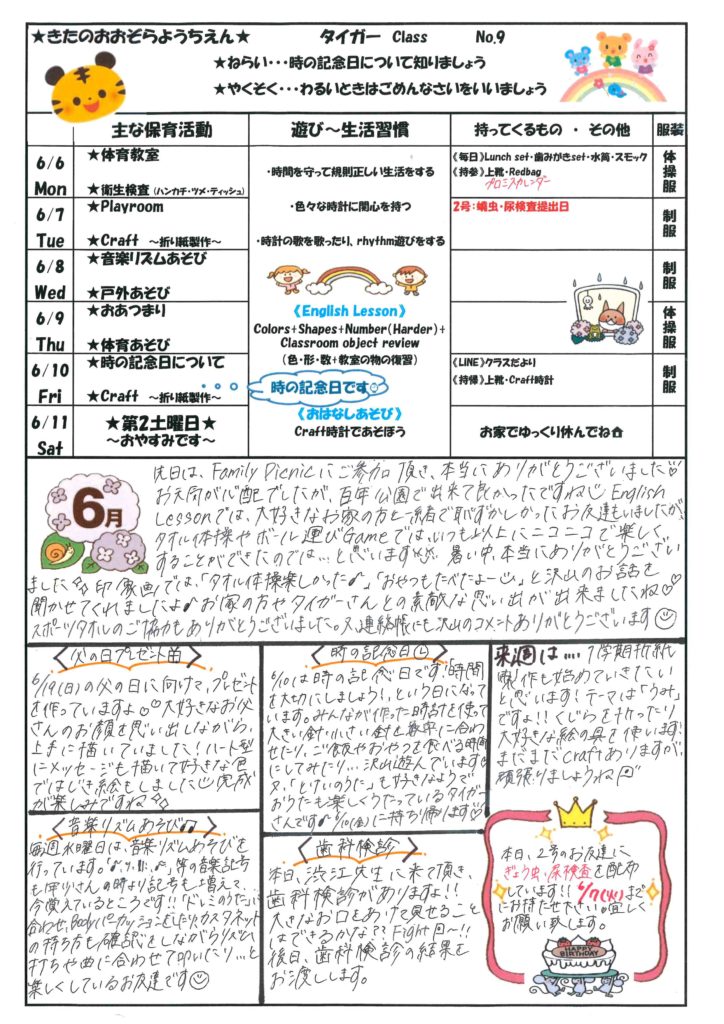 ★きたのおおぞらようちえん★ タイガー Class No.9
★ねらい・・・時の記念日について知りましょう
★やくそく・・・わるいときはごめんなさいをいいましょう
主な保育活動 遊び～生活習慣 持ってくるもの・その他 服装
6/6 Mon
★体育教室
★衛生検査（ハンカチ・ツメ・ティッシュ）
《毎日》Lunch set・歯みがきset・水筒・スモック
《持参》上靴・Redbag
プロミスカレンダー
体操服
6/7 Tue
★Playroom
★Craft ～折り紙製作～
2号：蟯虫・尿検査提出日
制服
6/8 Wed
★音楽リズムあそび
★戸外あそび
制服
6/9 Thu
★おあつまり
★体育あそび
体操服
6/10 Fri
★時の記念日について
★Craft ～折り紙製作～
《LINE》クラスだより
《持帰》上靴・Craft時計
制服
6/11 Sat
★第2土曜日★
～おやすみです～
お家でゆっくり休んでね
・時間を守って規則正しい生活をする
・色々な時計に関心を持つ
・時計の歌を歌ったり、rhythm遊びをする
《English Lesson》
Colors+Shapes+Number(Harder)+
Classroom object review
（色・形・数+教室の物の復習）
時の記念日です
《おはなしあそび》
Craft時計であそぼう
6月
先日は、Family Picnicにご参加頂き、本当にありがとうございました♡
お天気が心配でしたが、百年公園で出来て良かったですね English
Lessonでは、大好きなお家の方と一緒で恥ずかしかったお友達もいましたが、
タオル体操やボール運びGameでは、いつも以上にニコニコで楽しく
することができたのでは…と思います 暑い中、本当にありがとうござい
ました 印象画では、「タオル体操楽しかった♪」「おやつもたべたよー」と沢山のお話を
聞かせてくれましたよ♪お家の方やタイガーさんとの素敵な思い出が出来ましたね♡
スポーツタオルのご協力もありがとうございました。又、連絡帳にも沢山のコメントありがとうございます
〈父の日プレゼント〉
6/19(日)の父の日に向けて、プレゼント
を作っていますよ♡♡大好きなお父
さんのお顔を思い出しながら、
上手に描いていました！ハート型
にメッセージも描いて好きな色
ではじき絵もしました 完成
が楽しみですね
〈時の記念日〉
6/10は時の記念日です！「時間
を大切にしましょう！」という日になって
います。みんなが作った時計を使って
大きい針・小さい針を数字に合わ
せたり、ご飯やおやつを食べる時間
にしてみたり…沢山遊んでいます
又、「とけいのうた」も好きなようで
おうたも楽しくうたっているタイガー
さんです♪6/10(金)に持ち帰ります♡
来週は…
1学期折紙
製作も始めていきたい
と思います！テーマは「うみ」
ですよ！！くじらを折ったり
大好きな絵の具を使います！
まだまだCraftありますが、
頑張りましょうね
〈音楽リズムあそび♫〉
毎週水曜日は、音楽リズムあそびを
行っています。「♩、♪」等の音楽記号
も年少さんの時より記号も増えて、
今覚えているところです！！「ドレミのうた」に
合わせ、Bodyパーカッションをしたり、カスタネット
の持ち方も確認をしながらリズム
打ちや曲に合わせて叩いたり…と
楽しくしているお友達です
〈歯科検診〉
本日、渋江先生に来て頂き、
歯科検診がありますよ！！
大きなお口をあけて見せること
はできるかな？？Fight～！！
後日、歯科検診の結果を
お渡しします。
本日、2号のお友達に
ぎょう虫・尿検査を配布
しています！！6/7(火)まで
にお持たせ下さい。宜しく
お願い致します。
HAPPY BIRTHDAY